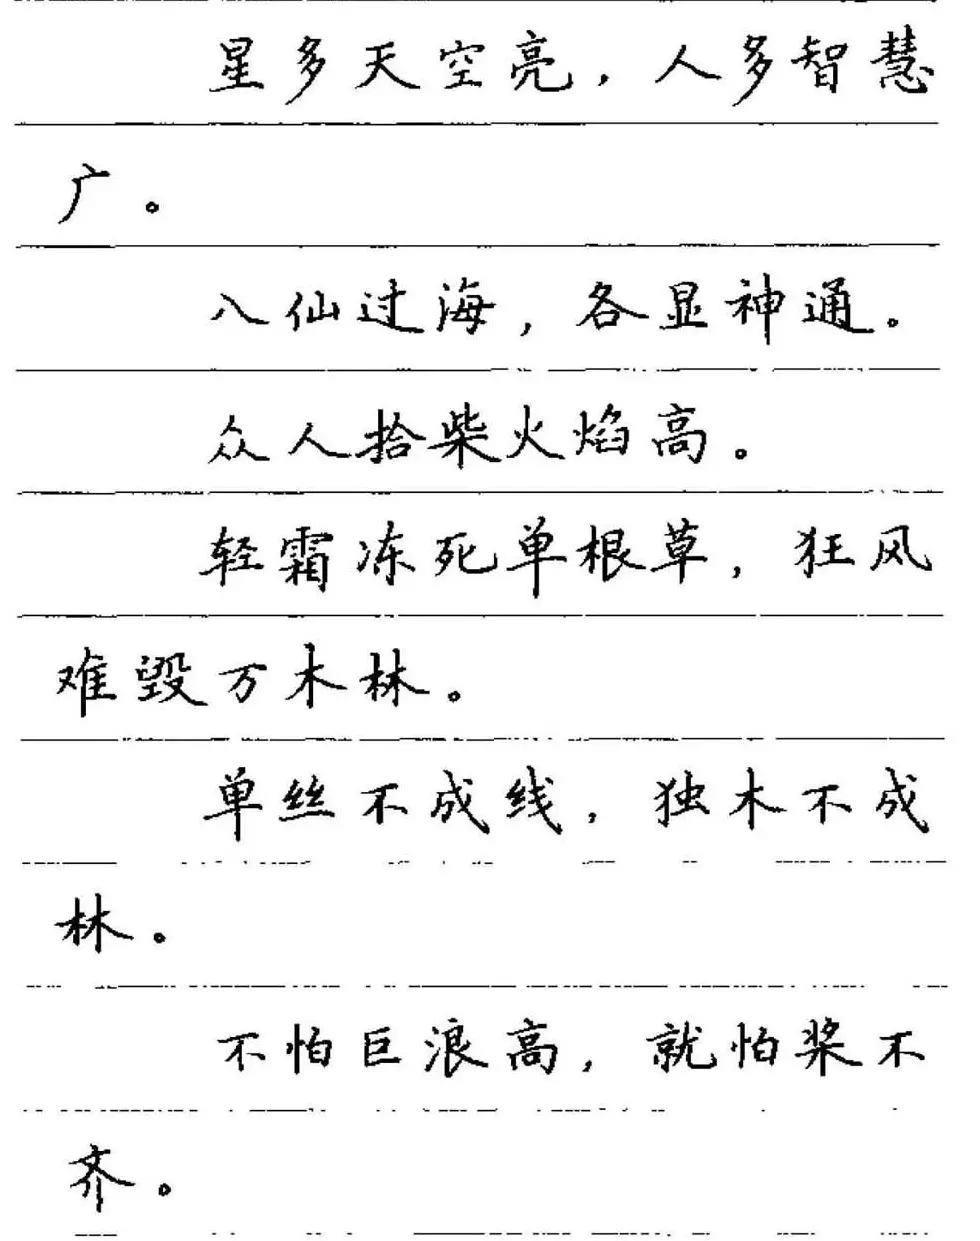 星多天空亮，人多智慧
广。
八仙过海，各显神通。
众人拾柴火焰高。
轻霜冻死单根草，狂风
难毁万木林。
单丝不成线，独木不成
林。
不怕巨浪高，就怕桨不
齐。